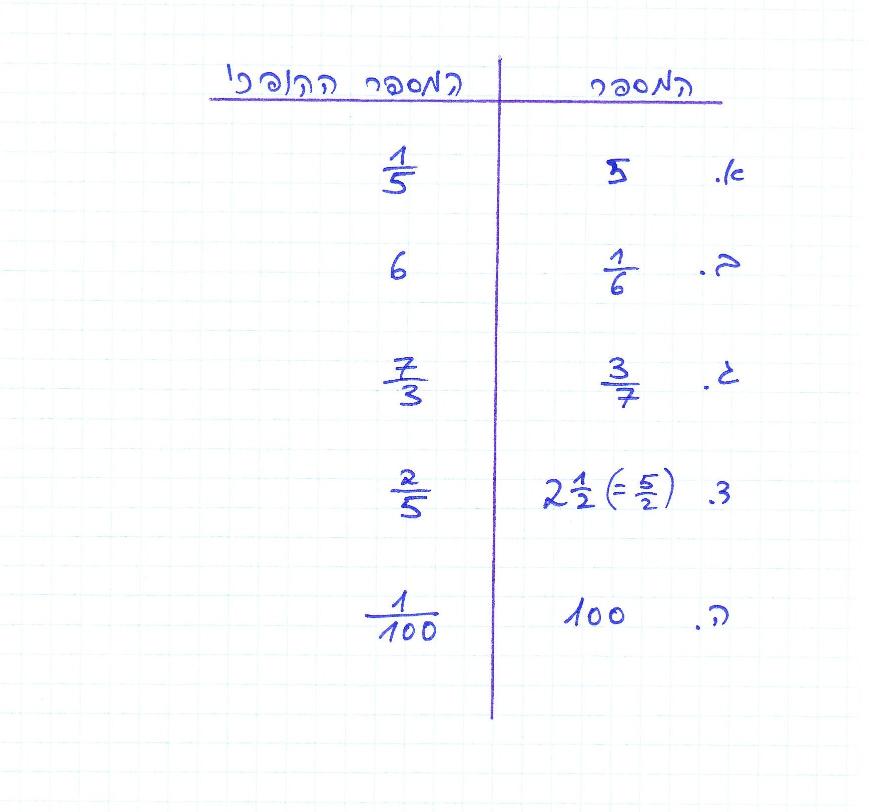 המספר המספר ההופכי
א. 5 1/5
ב. 1/6 6
ג. 3/7 7/3
ד. 2 1/2 (= 5/2) 2/5
ה. 100 1/100